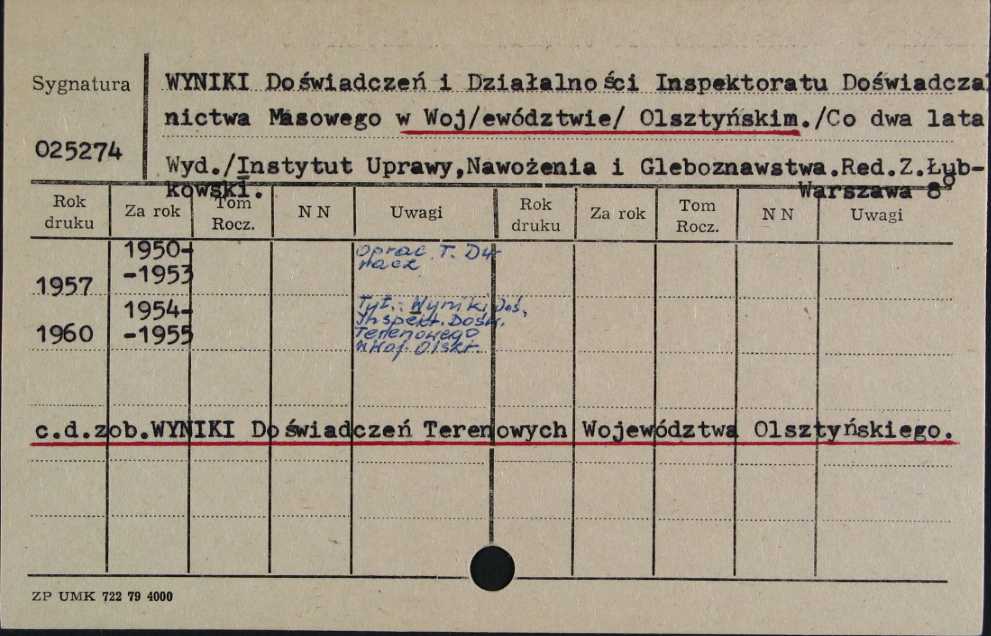 Sygnatura
025274
WYNIKI Doświadczeń i Działalności Inspektoratu Doświadczal
nictwa Masowego w Woj/ewództwie/ Olsztyńskim./Co dwa lata
Wyd./Instytut Uprawy,Nawożenia i Gleboznawstwa.Red.Z.Łub-
kowski. Warszawa 8°
Rok druku Za rok Tom Rocz. N N Uwagi Rok druku Za rok Tom Rocz. N N Uwagi
1950-
1957 -1953 Oprac T. Du-
nacz
1954-
1960 -1955 Tyt.: Wyniki Doś.
Inspekt. Dośw.
Terenowego
c.d.zob.WYNIKI Doświadczeń Terenowych Województwa Olsztyńskiego.
ZP UMK 722 79 4000